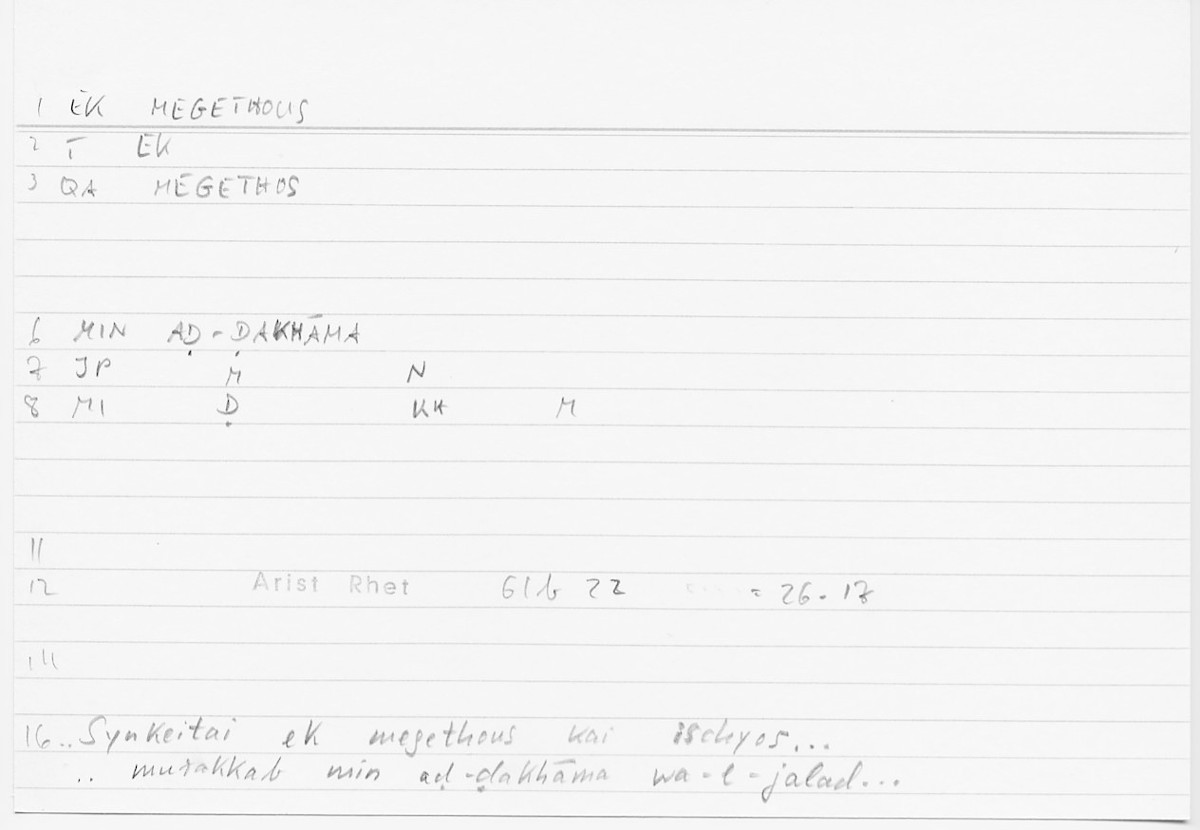 1 EK MEGETHOUS
2 T EK
3 QA MEGETHOS
6 MIN AḌ-ḌAKHĀMA
7 JP M N
8 MI Ḍ KH M
11
12 Arist Rhet 61b 22 = 26.17
14
16 .. Synkeitai ek megethous kai ischyos...
.. murakkab min aḍ-ḍakhāma wa-l-jalad...